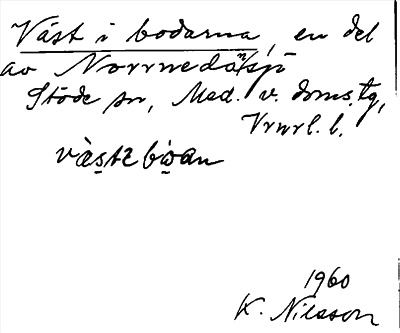 Väst i bodarna, en del
av Norrnedansjö
Stöde sn, Med. v. doms.tg,
Vrwrl. l.
väst2 boan
1960
K. Nilsson